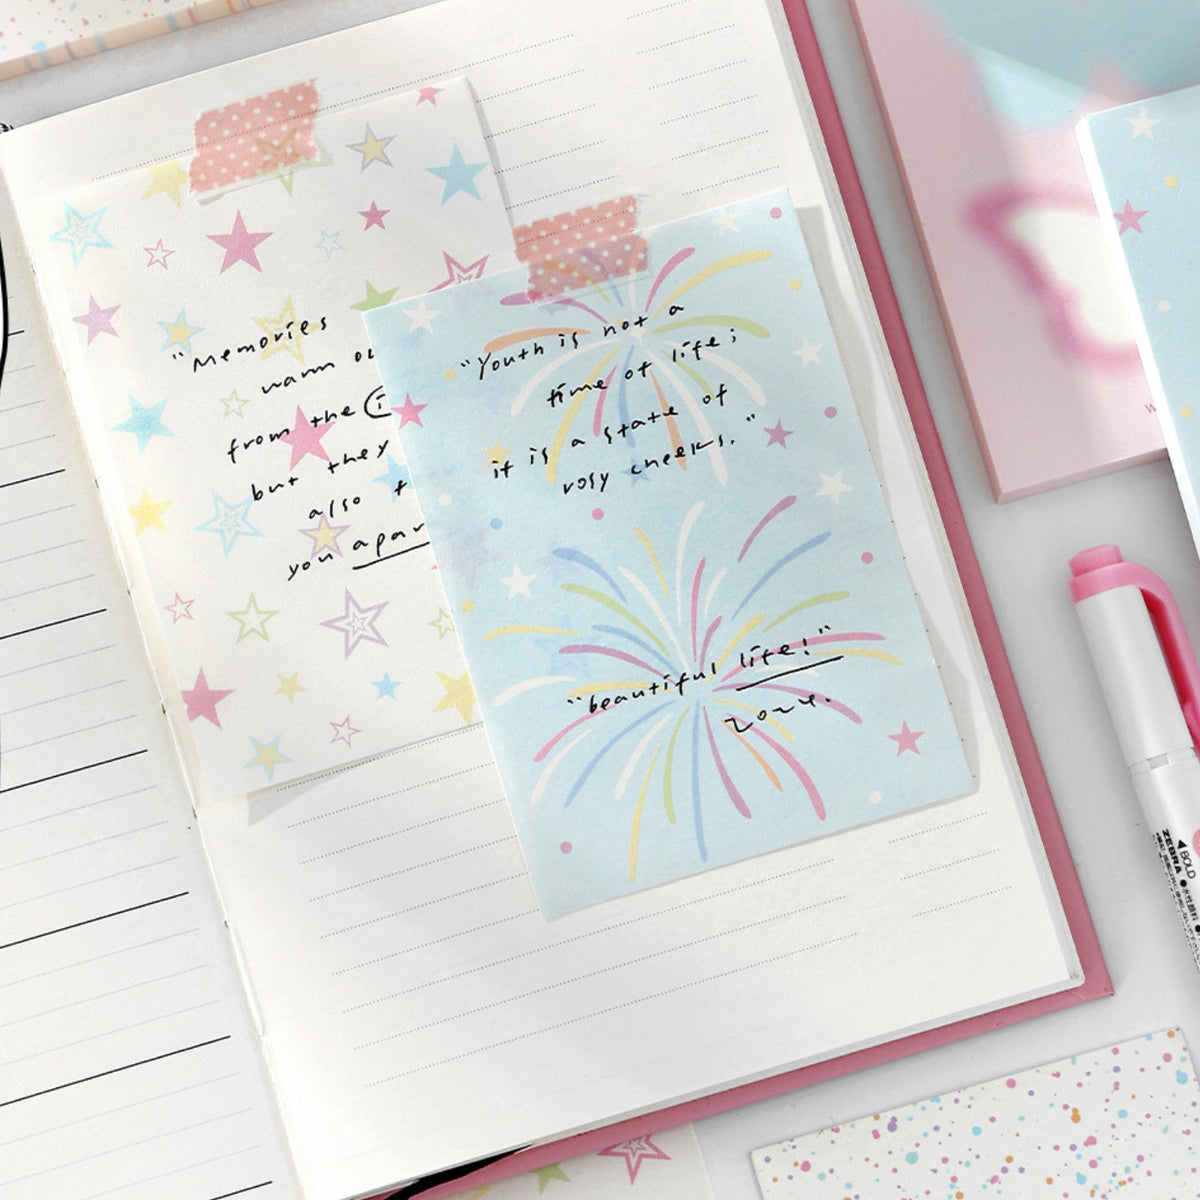 "Memories
warm
from the
but they
also
you apar
"Youth is not a
time of life;
it is a state of
rosy cheeks."
"beautiful life!"
2024.
W
BOLD
ZEBRA